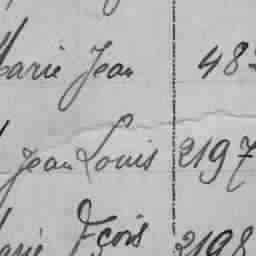 Marie Jean 48
Jean Louis 2197
Marie Fçois 2198